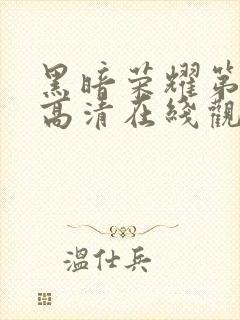 黑暗荣耀第
高清在线觀
溫仕兵